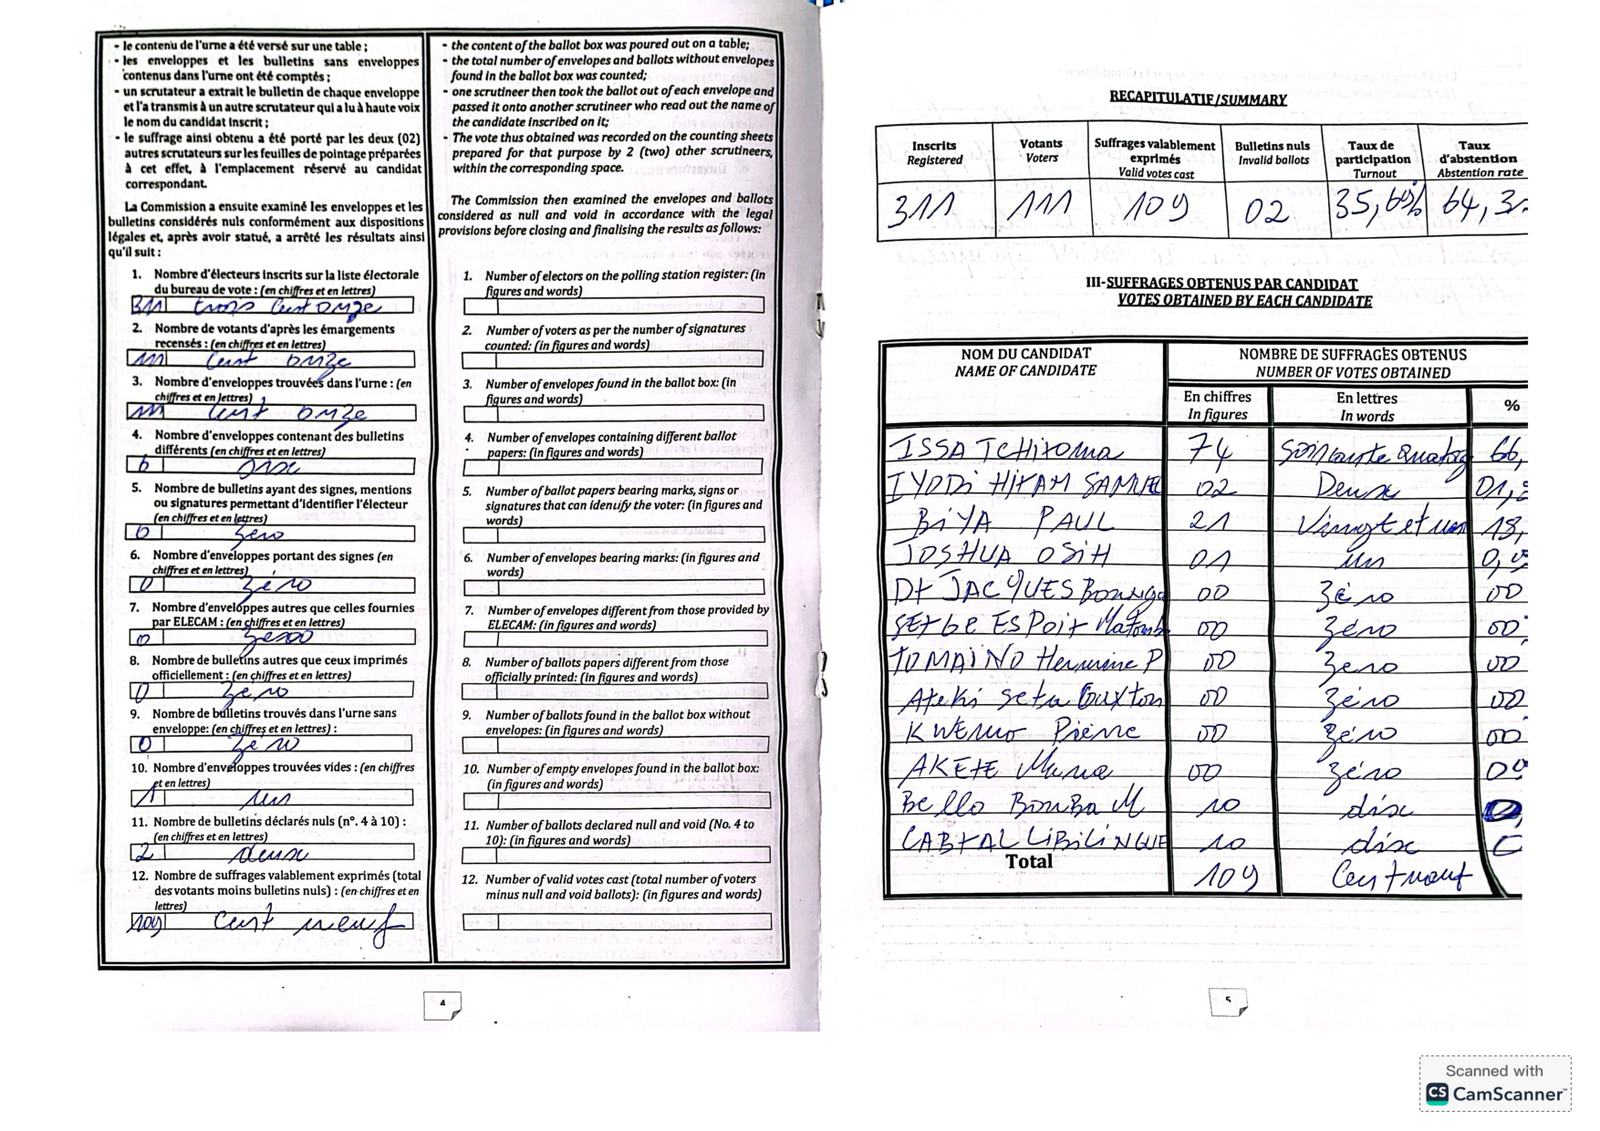 - le contenu de l'urne a été versé sur une table ;
- les enveloppes et les bulletins sans enveloppes
contenus dans l'urne ont été comptés ;
- un scrutateur a extrait le bulletin de chaque enveloppe
et l'a transmis à un autre scrutateur qui a lu à haute voix
le nom du candidat inscrit ;
- le suffrage ainsi obtenu a été porté par les deux (02)
autres scrutateurs sur les feuilles de pointage préparées
à cet effet, à l'emplacement réservé au candidat
correspondant.
La Commission a ensuite examiné les enveloppes et les
bulletins considérés nuls conformément aux dispositions
légales et, après avoir statué, a arrêté les résultats ainsi
qu'il suit :
1. Nombre d'électeurs inscrits sur la liste électorale
du bureau de vote : (en chiffres et en lettres)
311 trois cent onze
2. Nombre de votants d'après les émargements
recensés : (en chiffres et en lettres)
111 cent onze
3. Nombre d'enveloppes trouvées dans l'urne : (en
chiffres et en lettres)
111 cent onze
4. Nombre d'enveloppes contenant des bulletins
différents (en chiffres et en lettres)
5. Nombre de bulletins ayant des signes, mentions
ou signatures permettant d'identifier l'électeur
(en chiffres et en lettres)
0 zéro
6. Nombre d'enveloppes portant des signes (en
chiffres et en lettres)
0 zéro
7. Nombre d'enveloppes autres que celles fournies
par ELECAM : (en chiffres et en lettres)
0
8. Nombre de bulletins autres que ceux imprimés
officiellement : (en chiffres et en lettres)
0 zero
9. Nombre de bulletins trouvés dans l'urne sans
enveloppe: (en chiffres et en lettres) :
0 zéro
10. Nombre d'enveloppes trouvées vides : (en chiffres
et en lettres)
1 un
11. Nombre de bulletins déclarés nuls (n°. 4 à 10) :
(en chiffres et en lettres)
2 deux
12. Nombre de suffrages valablement exprimés (total
des votants moins bulletins nuls) : (en chiffres et en
lettres)
109 cent neuf
- the content of the ballot box was poured out on a table;
- the total number of envelopes and ballots without envelopes
found in the ballot box was counted;
- one scrutineer then took the ballot out of each envelope and
passed it onto another scrutineer who read out the name of
the candidate inscribed on it;
- The vote thus obtained was recorded on the counting sheets
prepared for that purpose by 2 (two) other scrutineers,
within the corresponding space.
The Commission then examined the envelopes and ballots
considered as null and void in accordance with the legal
provisions before closing and finalising the results as follows:
1. Number of electors on the polling station register: (in
figures and words)
2. Number of voters as per the number of signatures
counted: (in figures and words)
3. Number of envelopes found in the ballot box: (in
figures and words)
4. Number of envelopes containing different ballot
papers: (in figures and words)
5. Number of ballot papers bearing marks, signs or
signatures that can identify the voter: (in figures and
words)
6. Number of envelopes bearing marks: (in figures and
words)
7. Number of envelopes different from those provided by
ELECAM: (in figures and words)
8. Number of ballots papers different from those
officially printed: (in figures and words)
9. Number of ballots found in the ballot box without
envelopes: (in figures and words)
10. Number of empty envelopes found in the ballot box:
(in figures and words)
11. Number of ballots declared null and void (No. 4 to
10): (in figures and words)
12. Number of valid votes cast (total number of voters
minus null and void ballots): (in figures and words)
4
RECAPITULATIF/SUMMARY
Inscrits Registered Votants Voters Suffrages valablement exprimés Valid votes cast Bulletins nuls Invalid ballots Taux de participation Turnout Taux d'abstention Abstention rate
311 111 109 02 35,69% 64,3
III-SUFFRAGES OBTENUS PAR CANDIDAT
VOTES OBTAINED BY EACH CANDIDATE
NOM DU CANDIDAT NOMBRE DE SUFFRAGES OBTENUS
NAME OF CANDIDATE NUMBER OF VOTES OBTAINED
En chiffres En lettres %
In figures In words
ISSA TCHIROMA 74 Soixante Quatorze 66,
IYODI HIRAM SAMUE 02 Deux 01,
BiYA PAUL 21 Vinngt et un 19,
JOSHUA OSIH 01 un 0,
Dr JACQUES Bouga 00 zéro 00
SERGE ESPOIR Matomb 00 zéro 00
TOMAÏNO Hermine P 00 zero 00
Ateki Seta Caxton 00 zéro 00
KWEMO Pierre 00 zéro 00
AKERE Muna 00 zéro
Bello BouBa M 10 dix
CABRAL LIBII LINGUE 10 dix
Total 109 Cent neuf
5
Scanned with
CS CamScanner